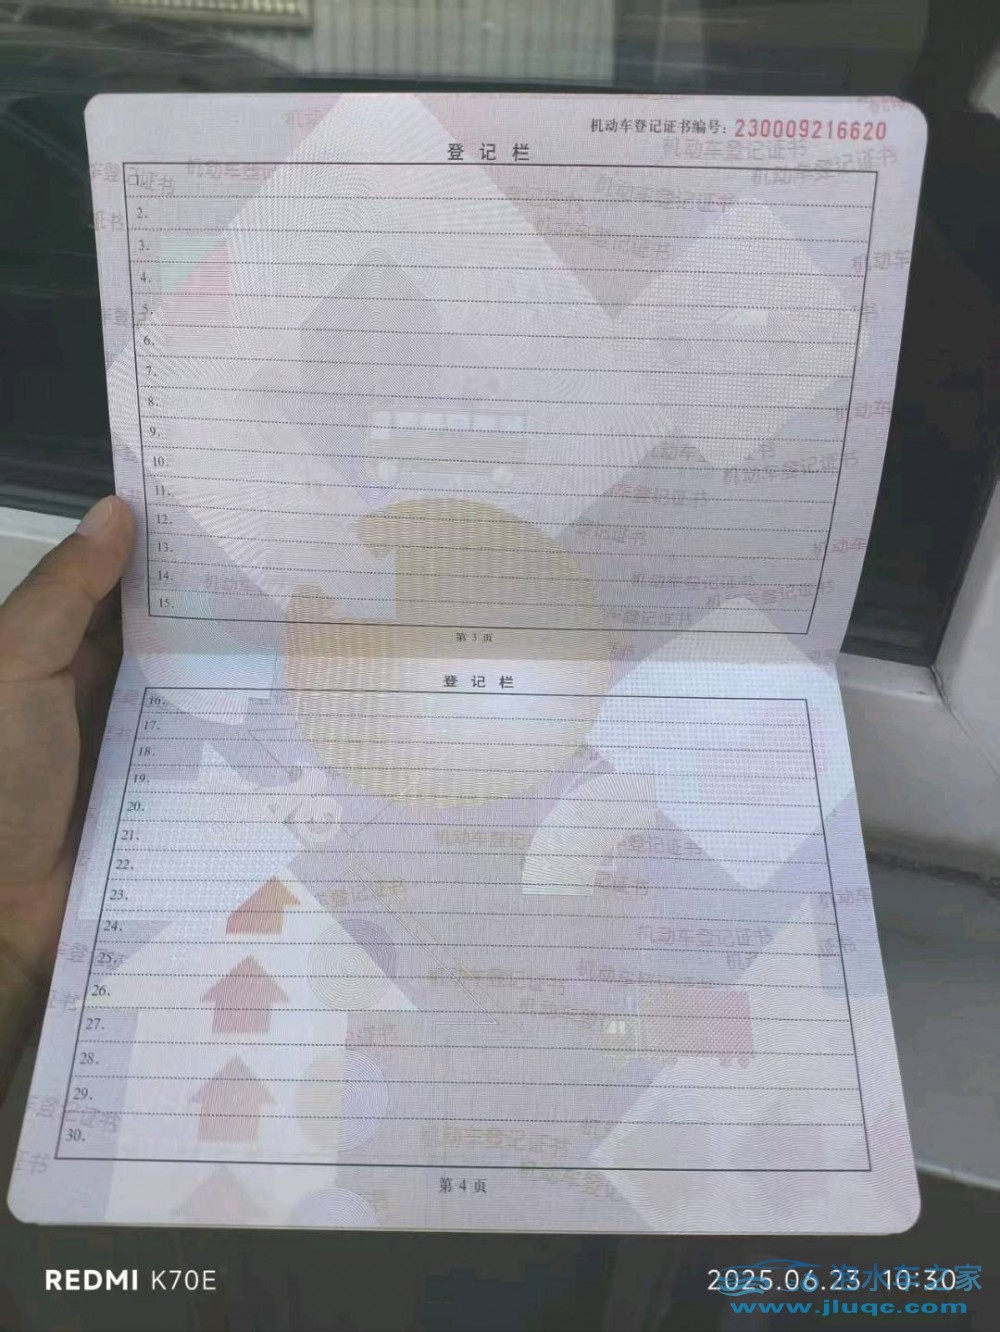 机动车登记证书编号：230009216620
登记栏
1.
2.
3.
4.
5.
6.
7.
8.
9.
10.
11.
12.
13.
14.
15.
第 3 页
登记栏
16.
17.
18.
19.
20.
21.
22.
23.
24.
25.
26.
27.
28.
29.
30.
第 4 页
机动车登记证书
REDMI K70E
2025.06.23 10:30
汽水车之家
www.jluqc.com